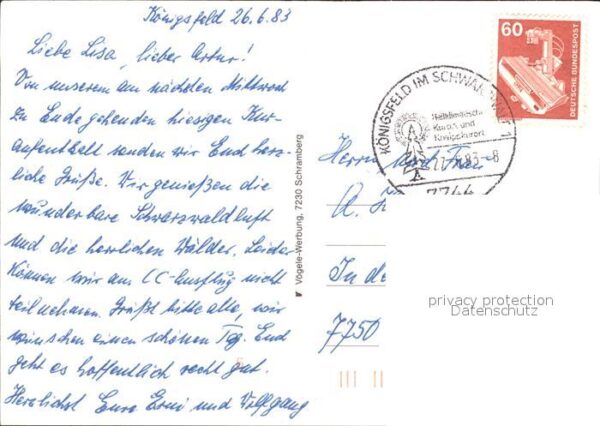 Königsfeld 26.6.83
Liebe Lisa, lieber Artur!
Von unserem am nächsten Mittwoch
zu Ende gehenden hiesigen Kur-
aufenthalt senden wir Euch herz-
liche Grüße. Wir genießen die
wunderbare Schwarzwaldluft
und die herrlichen Wälder. Leider
können wir am CC-Ausflug nicht
teilnehmen. Grüßt bitte alle, wir
wünschen einen schönen Tag. Euch
geht es hoffentlich recht gut.
Herzlichst Eure Erni und Wolfgang
Vögele-Werbung, 7230 Schramberg
60
DEUTSCHE BUNDESPOST
KÖNIGSFELD IM SCHWARZWALD 1
Heilklimatischer
Kurort und
Kneippkurort
83-8
7744
Herrn und Frau
A.
In de
7750
privacy protection
Datenschutz